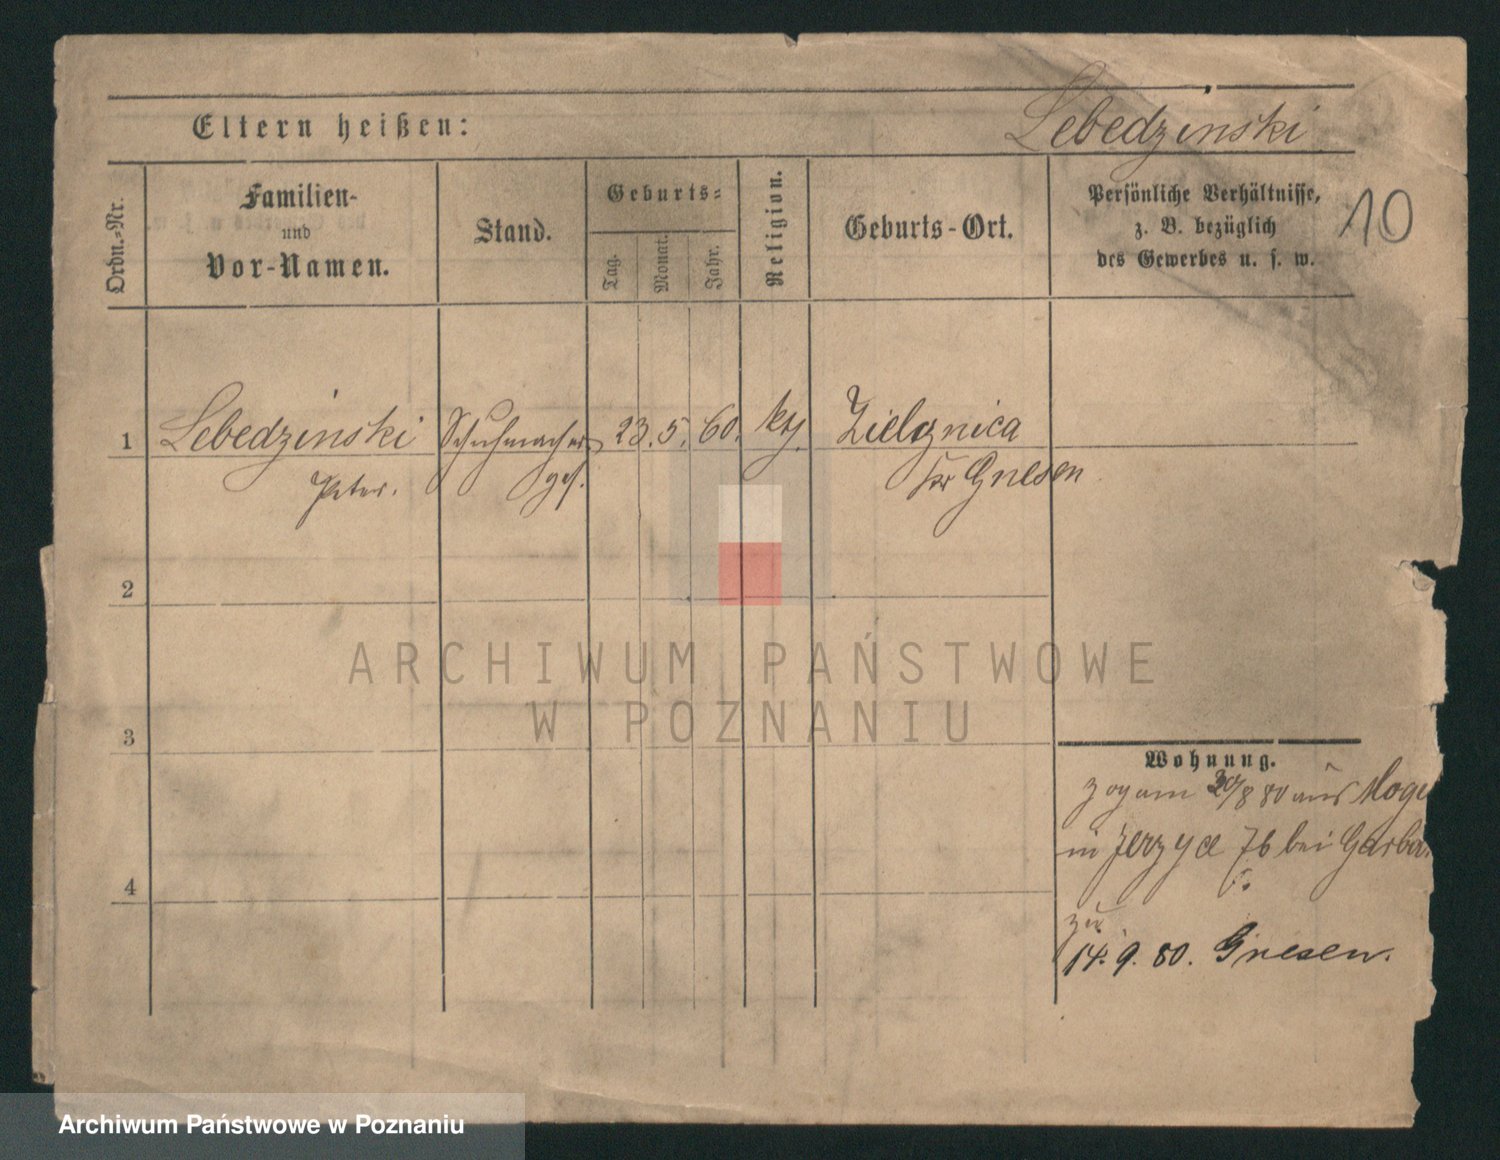 Lebedzinski
Eltern heißen:
10
Ordn.-Nr.
Familien-
und
Vor-Namen.
Stand.
Geburts-
Tag.
Monat.
Jahr.
Religion.
Geburts-Ort.
Persönliche Verhältnisse,
z. B. bezüglich
des Gewerbes u. s. w.
1 Lebedzinski Schuhmacher 23. 5. 60. kth. Zielznica
Peter. ges. Kr Gnesen
2
3
4
Wohnung.
zog am 30/8 80 aus Mogi
in Jerzyce 76 bei Garba
14. 9. 80. Gnesen.
ARCHIWUM PAŃSTWOWE
W POZNANIU
Archiwum Państwowe w Poznaniu